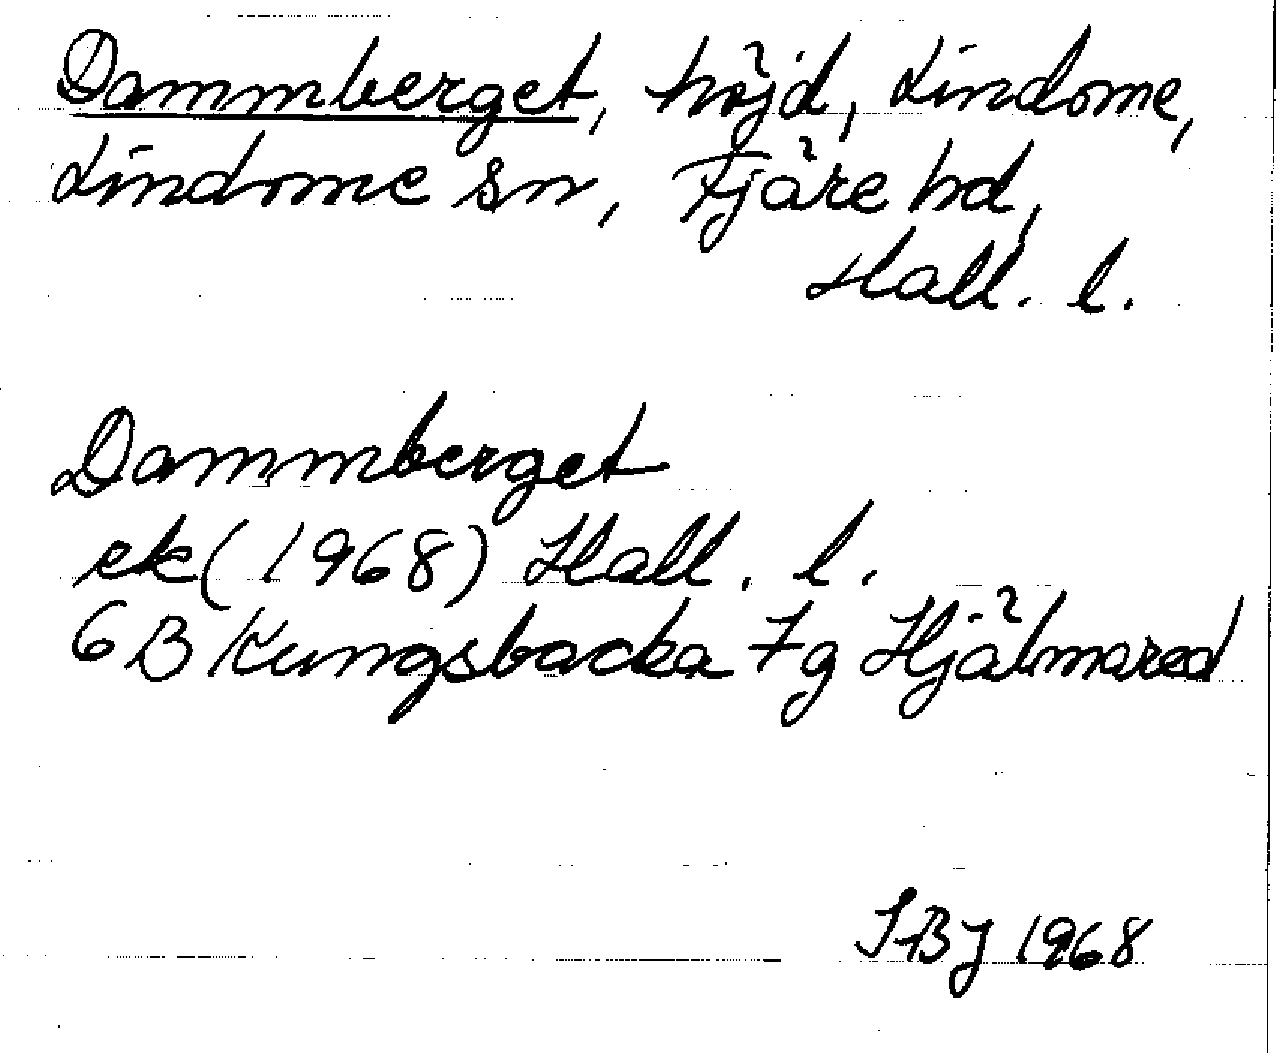 Dammberget, höjd, Lindome,
Lindome sn, Fjäre hd,
Hall. l.
Dammberget
ek (1968) Hall. l.
6 B Kungsbacka 7g Hjälmared
SBJ 1968